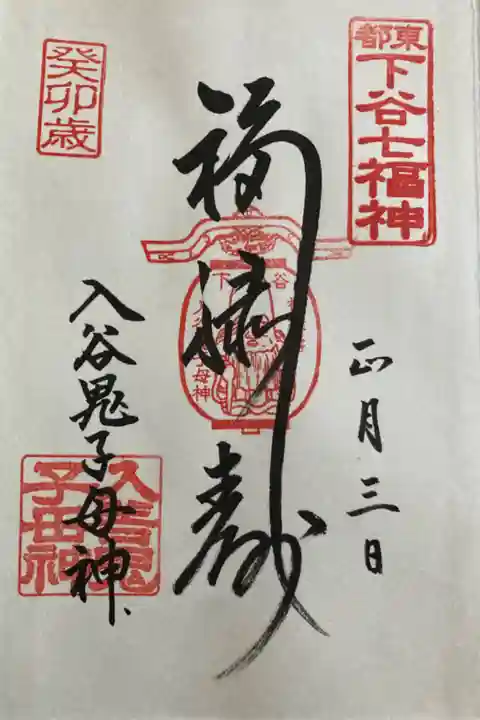 東都
下谷七福神
正月三日
福禄寿
下谷
入谷鬼子母神
癸卯歳
入谷鬼子母神